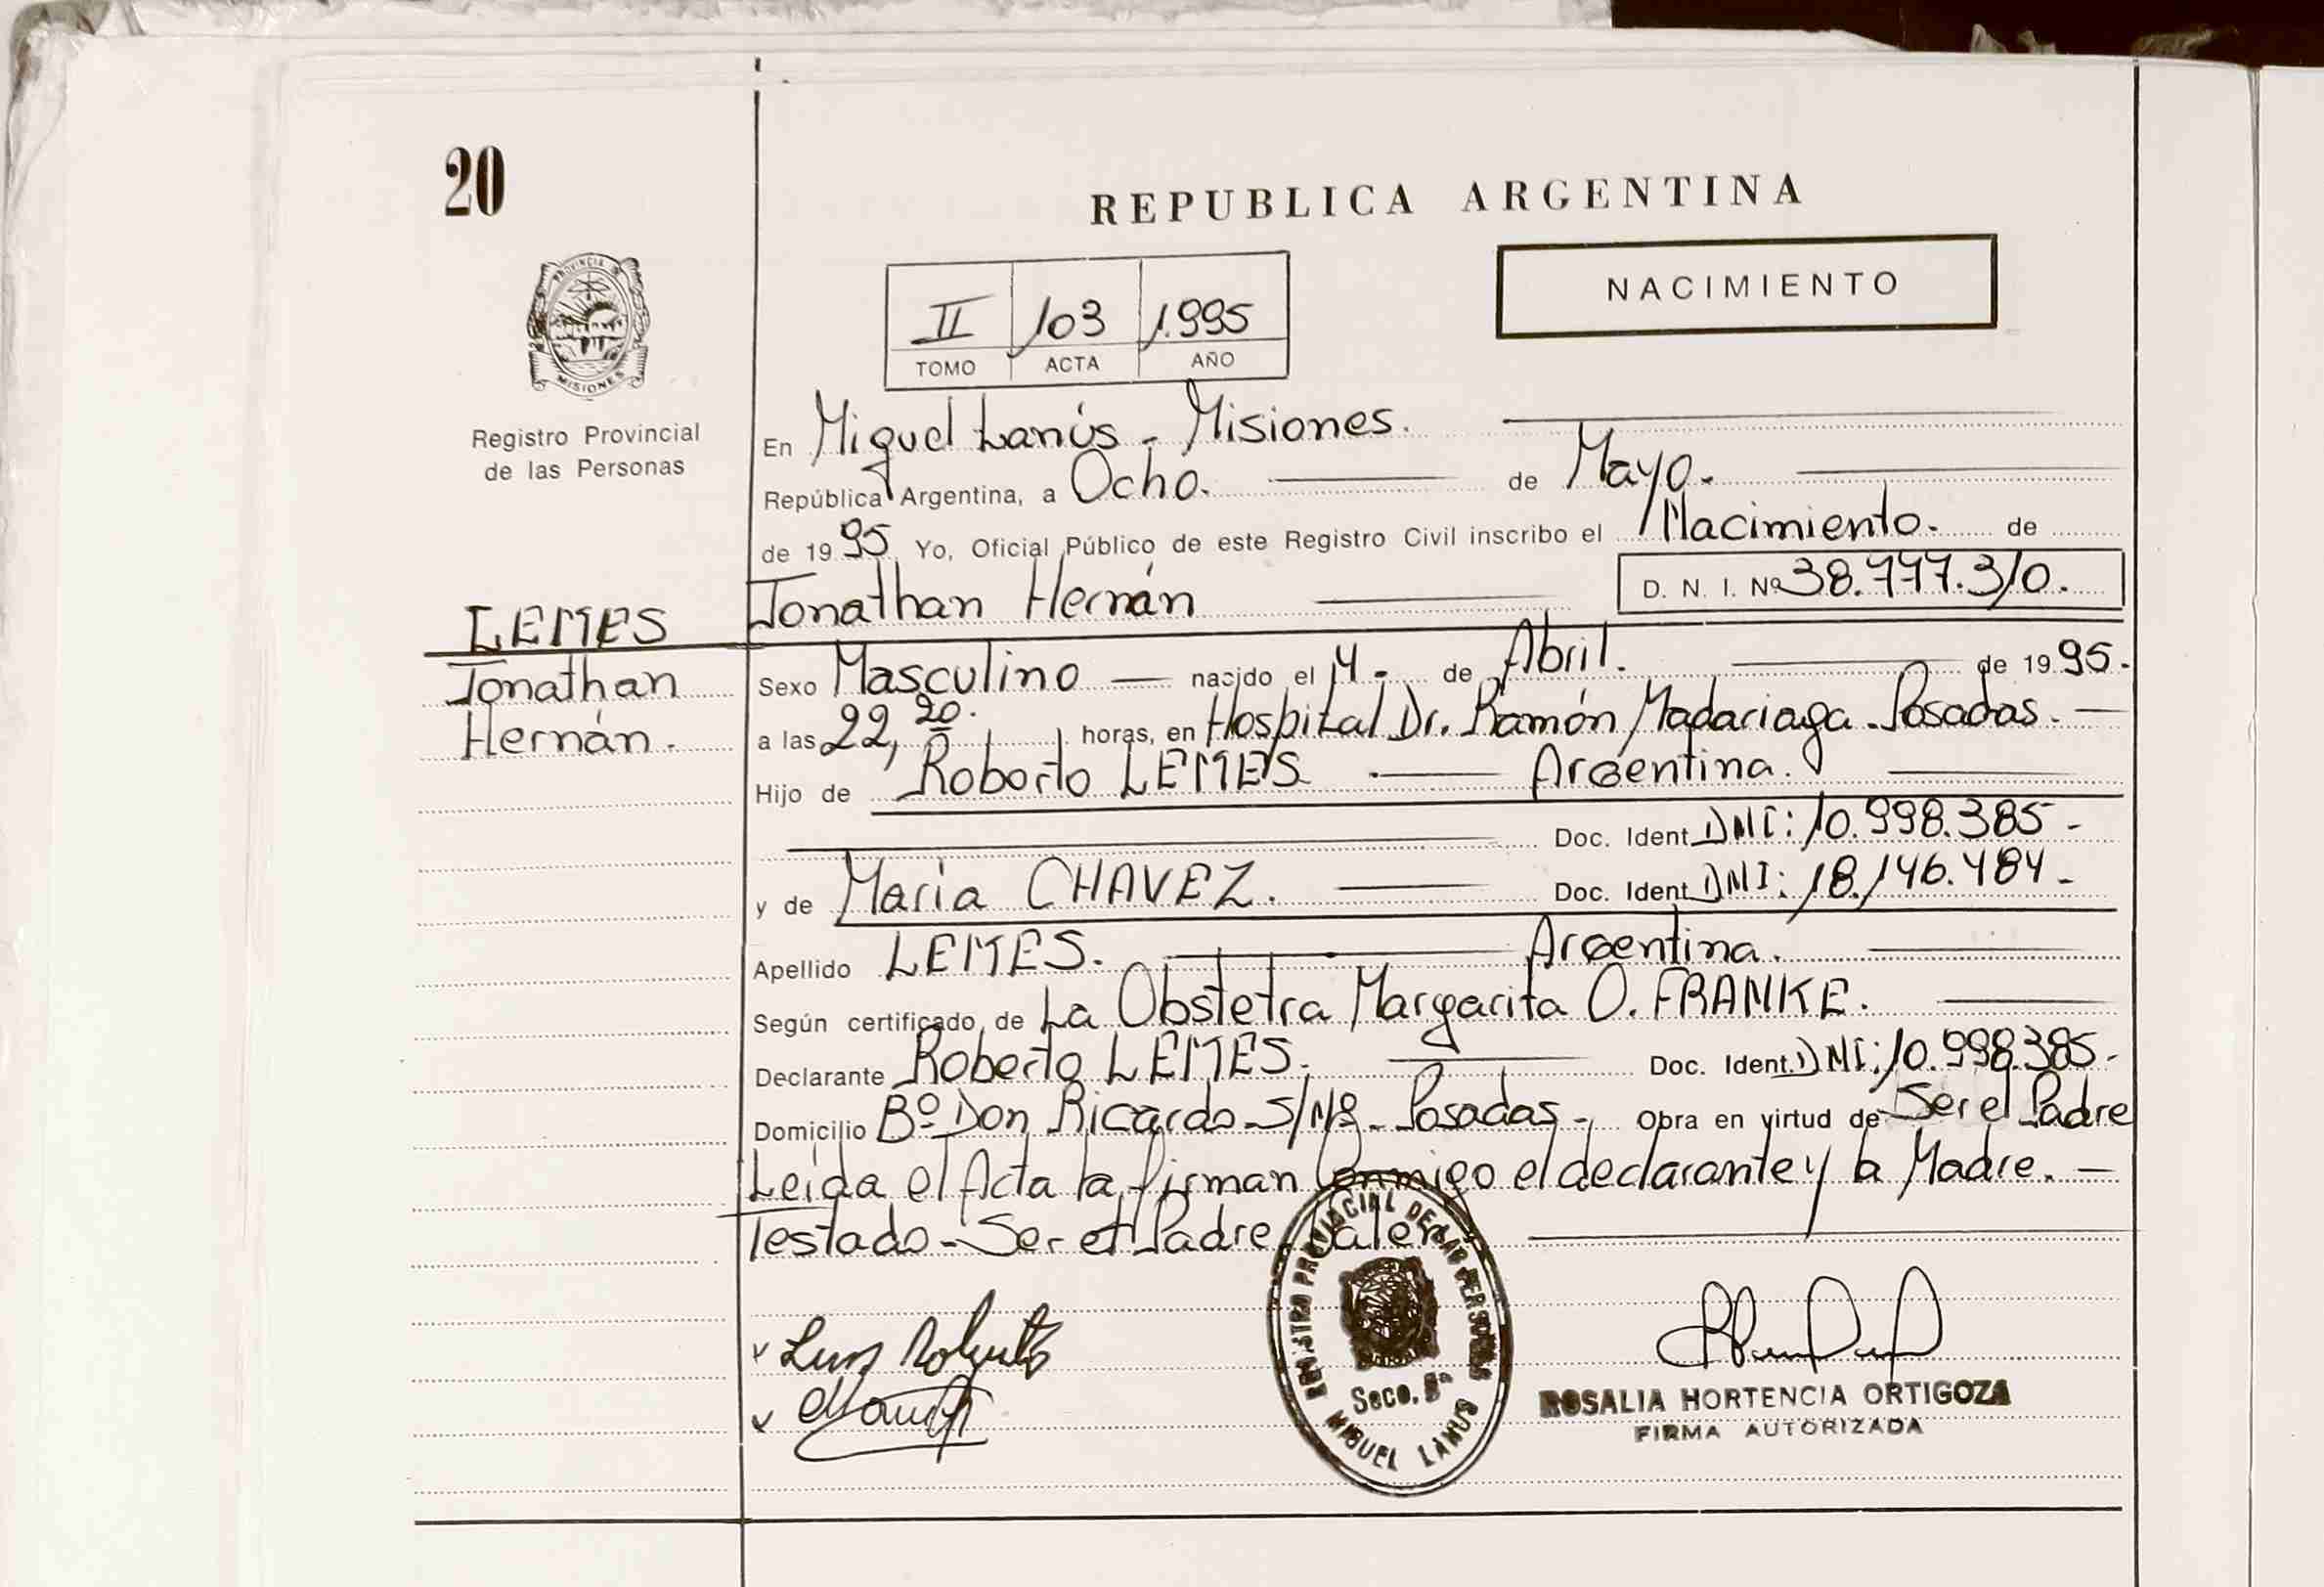 20
REPUBLICA ARGENTINA
NACIMIENTO
II 103 1.995
TOMO ACTA AÑO
PROVINCIA DE
MISIONES
Registro Provincial
de las Personas
En Miguel Lanús - Misiones.
República Argentina, a Ocho. de Mayo.
de 1995 Yo, Oficial Público de este Registro Civil inscribo el Nacimiento. de
Jonathan Hernán D. N. I. Nº 38.777.310.
LEMES
Jonathan
Hernán.
Sexo Masculino — nacido el 4 - de Abril. de 1995.
a las 22,20. horas, en Hospital Dr. Ramón Madariaga - Posadas. —
Hijo de Roberto LEMES Argentina.
Doc. Ident DNI: 10.998.385 -
y de María CHAVEZ. Doc. Ident DNI: 18.146.484 -
Apellido LEMES. Argentina.
Según certificado de La Obstetra Margarita O. FRANKE.
Declarante Roberto LEMES. Doc. Ident. DNI: 10.998.385 -
Domicilio Bº Don Ricardo - S/Nº - Posadas - Obra en virtud de Ser el Padre
Leída el Acta la firman Conmigo el declarante y la Madre. —
Testado - Ser el Padre.
Luis Roberto
REGISTRO PROVINCIAL DE LAS PERSONAS
Secc. 5ª
MIGUEL LANUS
ROSALIA HORTENCIA ORTIGOZA
FIRMA AUTORIZADA